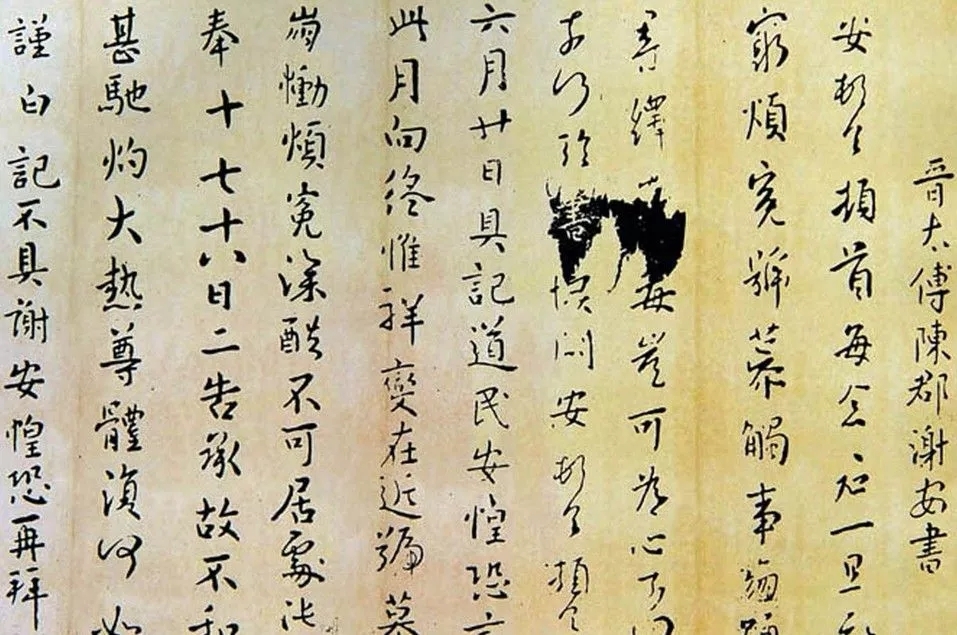 晉太傅陳郡謝安書
安頓首頓首每念君一旦
窮煩冤號慕觸事
尋繹 毒豈可為心
奈何臨書 問安頓首頓首
六月廿日具記道民安惶恐言
此月向終惟祥變在近號慕
崩慟煩冤深酷不可居處
奉十七十八日二告承故不和
甚馳灼大熱尊體復何如
謹白記不具謝安惶恐再拜